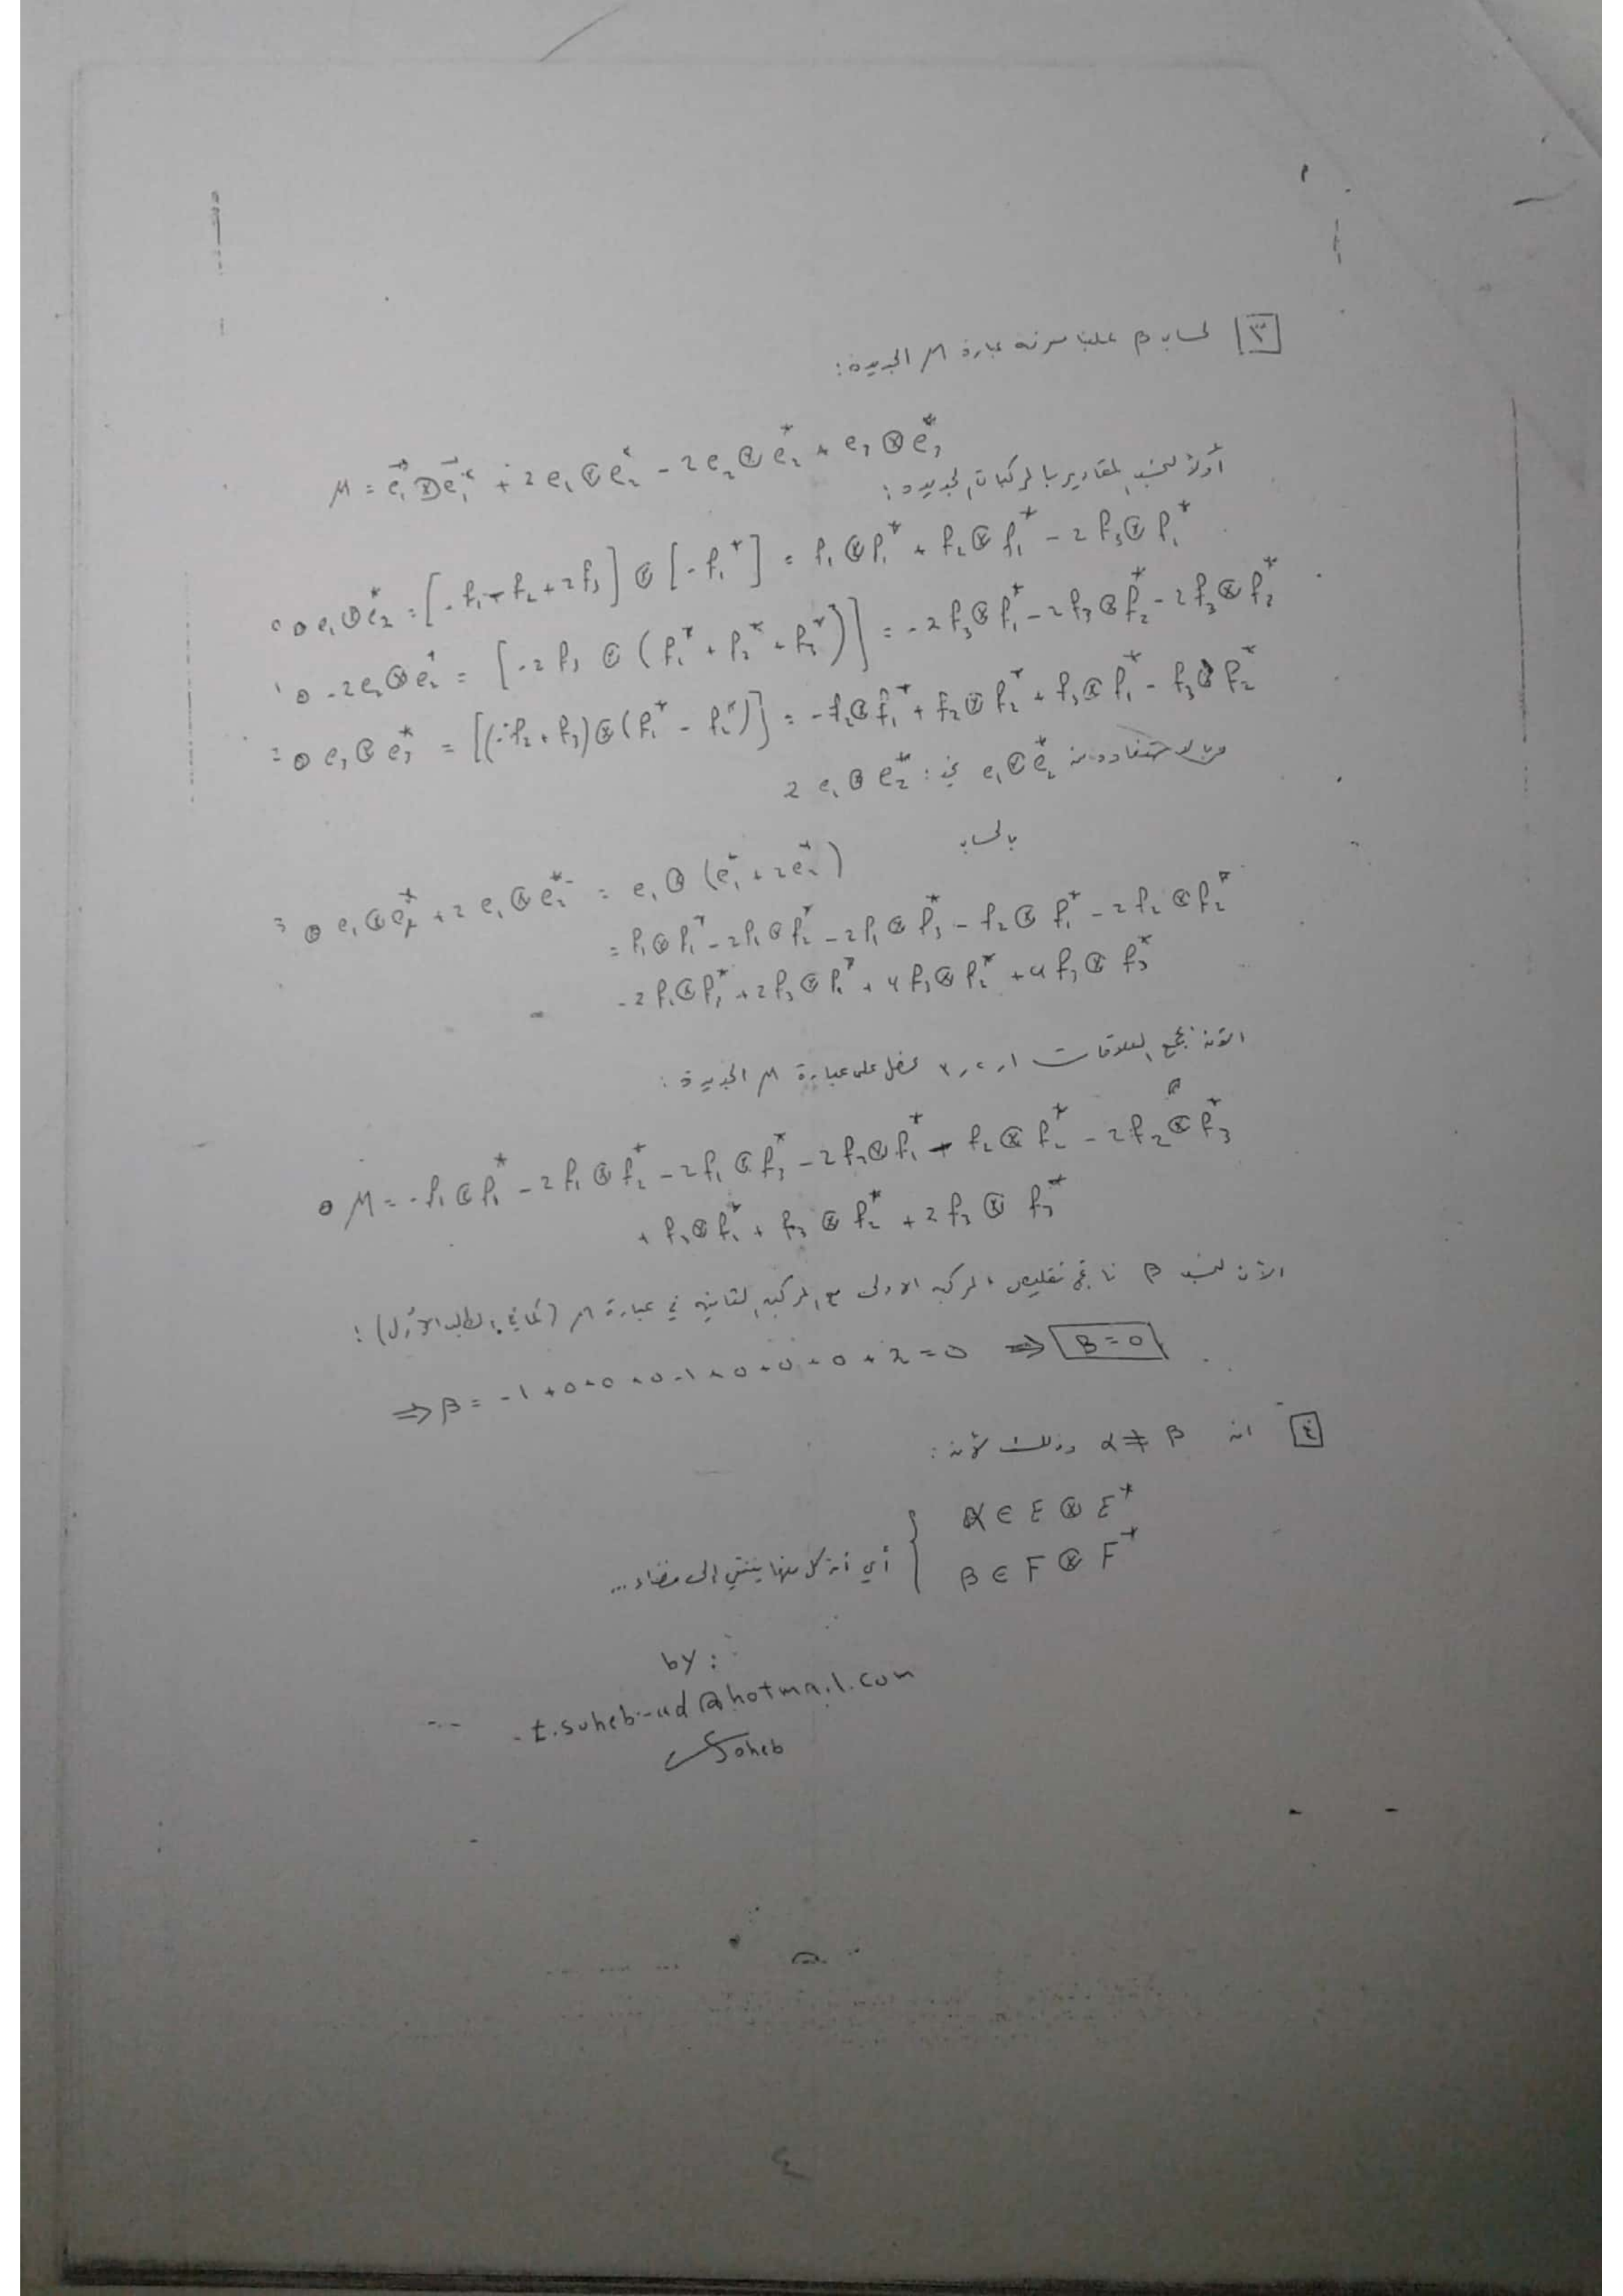 ٣ لحساب β علينا معرفة عبارة M الجديدة:
M = e₁ ⊗ e₁* + 2 e₁ ⊗ e₂* - 2 e₂ ⊗ e₂* + e₃ ⊗ e₃*
أولاً لنحسب المقادير بالمركبات الجديدة:
e₁ ⊗ e₂* = [-f₁ + f₂ + 2f₃] ⊗ [-f₁*] = f₁ ⊗ f₁* + f₂ ⊗ f₁* - 2 f₃ ⊗ f₁*
-2e₂ ⊗ e₂* = [-2 f₃ ⊗ (f₁* + f₂* + f₃*)] = -2 f₃ ⊗ f₁* - 2 f₃ ⊗ f₂* - 2 f₃ ⊗ f₃*
e₃ ⊗ e₃* = [(-f₂ + f₃) ⊗ (f₁* - f₂*)] = -f₂ ⊗ f₁* + f₂ ⊗ f₂* + f₃ ⊗ f₁* - f₃ ⊗ f₂*
وبالاستفادة من e₁ ⊗ e₂* في: 2 e₁ ⊗ e₂*
بالحساب
e₁ ⊗ e₁* + 2 e₁ ⊗ e₂* = e₁ ⊗ (e₁* + 2e₂*)
= f₁ ⊗ f₁* - 2f₁ ⊗ f₂* - 2f₁ ⊗ f₃* - f₂ ⊗ f₁* - 2 f₂ ⊗ f₂*
- 2 f₂ ⊗ f₃* + 2 f₃ ⊗ f₁* + 4 f₃ ⊗ f₂* + 4 f₃ ⊗ f₃*
الآن نجمع العلاقات ١ و ٢ و ٣ نحصل على عبارة M الجديدة:
M = -f₁ ⊗ f₁* - 2 f₁ ⊗ f₂* - 2 f₁ ⊗ f₃* - 2 f₂ ⊗ f₁* - f₂ ⊗ f₂* - 2 f₂ ⊗ f₃*
+ f₃ ⊗ f₁* + f₃ ⊗ f₂* + 2 f₃ ⊗ f₃*
الآن لنحسب β ناتج تقليص المركبة الاولى مع المركبة الثانية في عبارة M (كما في الطلب الأول):
⇒ β = -1 + 0 + 0 + 0 - 1 + 0 + 0 + 0 + 2 = 0 ⇒ B = 0
٤ ان α ≠ β وذلك لأن:
α ∈ E ⊗ E*
β ∈ F ⊗ F*
أي أن كل منها ينتمي إلى فضاء...
by:
t.soheb-ud@hotmail.com
Soheb
٤